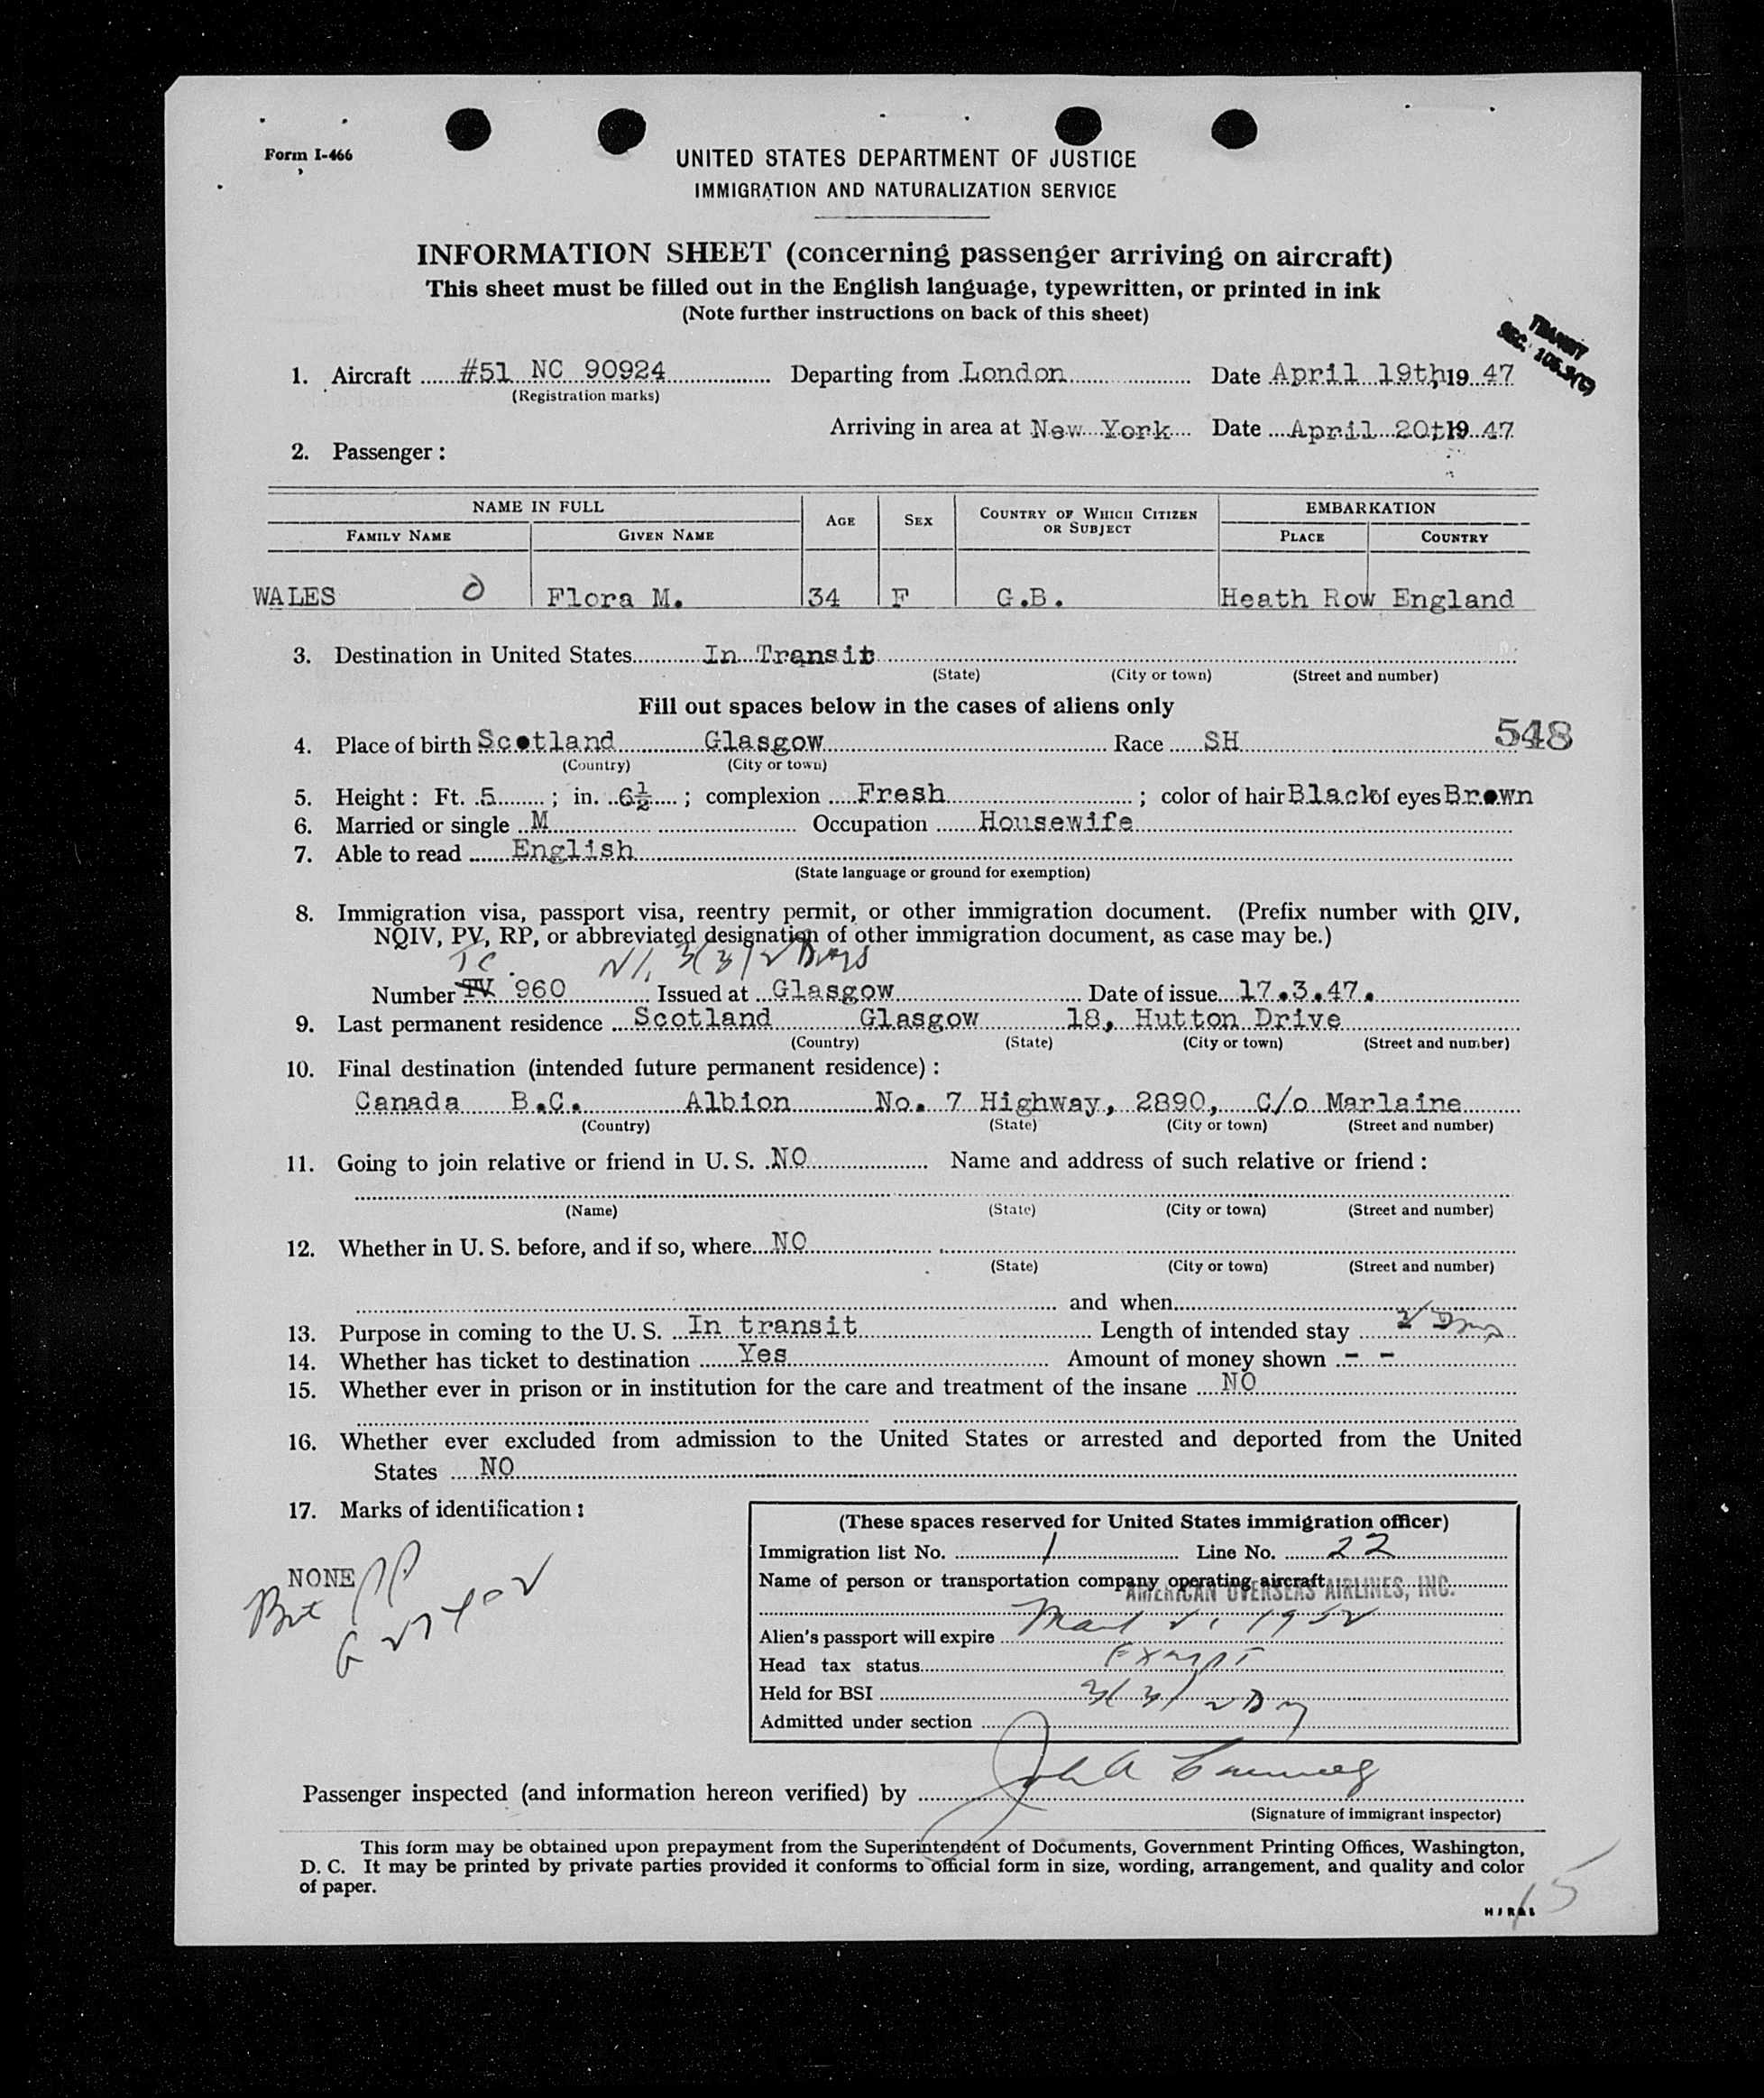 Form I-466
UNITED STATES DEPARTMENT OF JUSTICE
IMMIGRATION AND NATURALIZATION SERVICE
INFORMATION SHEET (concerning passenger arriving on aircraft)
This sheet must be filled out in the English language, typewritten, or printed in ink
(Note further instructions on back of this sheet)
TRANSIT
SEC. 105.3(C)
1. Aircraft #51 NC 90924 Departing from London Date April 19th, 19 47
(Registration marks)
Arriving in area at New York Date April 20t 19 47
2. Passenger:
NAME IN FULL AGE SEX COUNTRY OF WHICH CITIZEN OR SUBJECT EMBARKATION
FAMILY NAME GIVEN NAME PLACE COUNTRY
WALES Flora M. 34 F G.B. Heath Row England
3. Destination in United States In Transit
(State) (City or town) (Street and number)
Fill out spaces below in the cases of aliens only
4. Place of birth Scotland Glasgow Race SH 548
(Country) (City or town)
5. Height: Ft. 5; in. 6½; complexion Fresh; color of hair Black of eyes Brown
6. Married or single M Occupation Housewife
7. Able to read English
(State language or ground for exemption)
8. Immigration visa, passport visa, reentry permit, or other immigration document. (Prefix number with QIV,
NQIV, PV, RP, or abbreviated designation of other immigration document, as case may be.)
TC. 3(3) 2 Days
Number TV 960 Issued at Glasgow Date of issue 17.3.47.
9. Last permanent residence Scotland Glasgow 18, Hutton Drive
(Country) (State) (City or town) (Street and number)
10. Final destination (intended future permanent residence):
Canada B.C. Albion No. 7 Highway, 2890, C/o Marlaine
(Country) (State) (City or town) (Street and number)
11. Going to join relative or friend in U. S. NO Name and address of such relative or friend:
(Name) (State) (City or town) (Street and number)
12. Whether in U. S. before, and if so, where NO
(State) (City or town) (Street and number)
and when
13. Purpose in coming to the U. S. In transit Length of intended stay 2 Days
14. Whether has ticket to destination Yes Amount of money shown - -
15. Whether ever in prison or in institution for the care and treatment of the insane NO
16. Whether ever excluded from admission to the United States or arrested and deported from the United
States NO
17. Marks of identification:
NONE
(These spaces reserved for United States immigration officer)
Immigration list No. 1 Line No. 22
Name of person or transportation company operating aircraft AMERICAN OVERSEAS AIRLINES, INC.
Alien's passport will expire 1952
Head tax status Exempt
Held for BSI 3(3) 2 Day
Admitted under section
Passenger inspected (and information hereon verified) by John A
(Signature of immigrant inspector)
This form may be obtained upon prepayment from the Superintendent of Documents, Government Printing Offices, Washington,
D. C. It may be printed by private parties provided it conforms to official form in size, wording, arrangement, and quality and color
of paper.
15